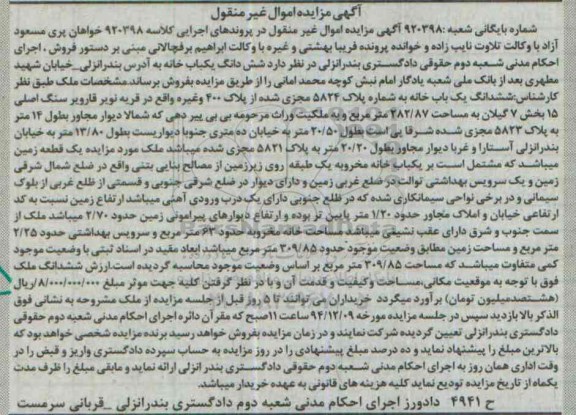 آگهی مزایده اموال غیر منقول
شماره بایگانی شعبه :۹۲۰۳۹۸ آگهی مزایده اموال غیر منقول در پروندهای اجرایی کلاسه ۹۲۰۳۹۸ خواهان پری مسعود
آزاد با وکالت تلاوت نایب زاده و خوانده پرونده فریبا بهشتی و غیره با وکالت ابراهیم برقچالانی مبنی بر دستور فروش ، اجرای
احکام مدنی شعبه دوم حقوقی دادگستری بندرانزلی در نظر دارد شش دانگ یکباب خانه به آدرس بندرانزلی_خیابان شهید
مطهری بعد از بانک ملی شعبه یادگار امام نبش کوچه محمد امانی را از طریق مزایده بفروش برساند.مشخصات ملک طبق نظر
کارشناس:ششدانگ یک باب خانه به شماره پلاک ۵۸۲۴ مجزی شده از پلاک ۴۰۰ وغیره واقع در قریه نویر قاروبر سنگ اصلی
۱۵ بخش ۷ گیلان به مساحت ۲۸۲/۸۷ متر مربع و به ملکیت وراث مرحومه بی بی پیر دهی که شمالا دیوار مجاور بطول ۱۴ متر
به پلاک ۵۸۲۳ مجزی شده شرقا پی است بطول ۲۰/۵۰ متر به خیابان ده متری جنوبا دیواریست بطول ۱۳/۸۰ متر به خیابان
بندرانزلی آستارا و غربا دیوار مجاور بطول ۲۰/۲۰ متر به پلاک ۵۸۲۱ مجزی شده میباشد ملک مورد مزایده یک قطعه زمین
میباشد که مشتمل است بر یکباب خانه مخروبه یک طبقه روی زیرزمین از مصالح بنایی بتنی واقع در ضلع شمال شرقی
زمین و یک سرویس بهداشتی توالت در ضلع غربی زمین و دارای دیوار در ضلع شرقی جنوبی و قسمتی از ظلع غربی از بلوک
سیمانی و در برخی نواحی سیمانکاری شده که در ظلع جنوبی دارای یک درب ورودی آهنی میباشد ارتفاع زمین نسبت به کد
ارتفاعی خیابان و املاک مجاور حدود ۱/۲۰ متر پایین تر بوده و ارتفاع دیوارهای پیرامونی زمین حدود ۲/۷۰ میباشد ملک از
سمت جنوب و شرق دارای عقب نشینی میباشد مساحت خانه مخروبه حدود ۶۳ متر مربع و سرویس بهداشتی حدود ۲/۲۵
متر مربع و مساحت زمین مطابق وضعیت موجود حدود ۳۰۹/۸۵ متر مربع میباشد ابعاد مقید در اسناد ثبتی با وضعیت موجود
کمی متفاوت میباشد که مساحت ۳۰۹/۸۵ متر مربع بر اساس وضعیت موجود محاسبه گردیده است.ارزش ششدانگ ملک
فوق با توجه به موقعیت مکانی،مساحت وکیفیت و قدمت آن و با در نظر گرفتن کلیه جهت موثر مبلغ ۸/۰۰۰/۰۰۰/۰۰۰ریال
(هشتصدمیلیون تومان) برآورد میگردد خریداران می توانند تا ۵ روز قبل از جلسه مزایده از ملک مشروحه به نشانی فوق
الذکر بالا بازدید سپس در جلسه مزایده مورخه ۹۴/۱۲/۰۹ ساعت ۱۱صبح که مقرآن دائره اجرای احکام مدنی شعبه دوم حقوقی
دادگستری بندرانزلی تعیین گردیده شرکت نمایند و در زمان مزایده بفروش خواهد رسید برنده مزایده شخصی خواهد بود که
بالاترین مبلغ را پیشنهاد نماید و ده درصد مبلغ پیشنهادی را در روز مزایده به حساب سپرده دادگستری واریز و قبض را در
وقت اداری همان روز به اجرای احکام مدنی شعبه دوم حقوقی دادگستری بندر انزلی ارائه نماید و مابقی مبلغ را ظرف مدت
یکماه از تاریخ مزایده تودیع نماید کلیه هزینه های قانونی به عهده خریدار میباشد.
ح ۴۹۴۱ دادورز اجرای احکام مدنی شعبه دوم دادگستری بندرانزلی _قربانی سرمست